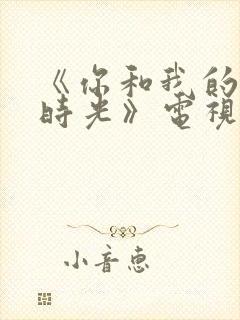 《你和我的
時光》電視
小音惠